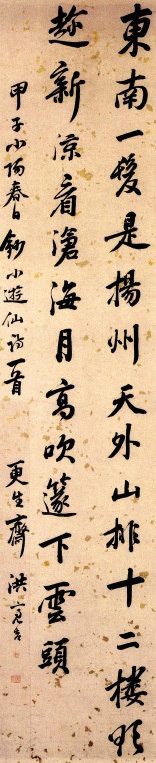 東南一髮是揚州天外山排十二樓欲
趂新涼看滄海月高吹篴下雲頭
甲子小陽春日錄小遊仙詩一首 更生齋 洪亮吉